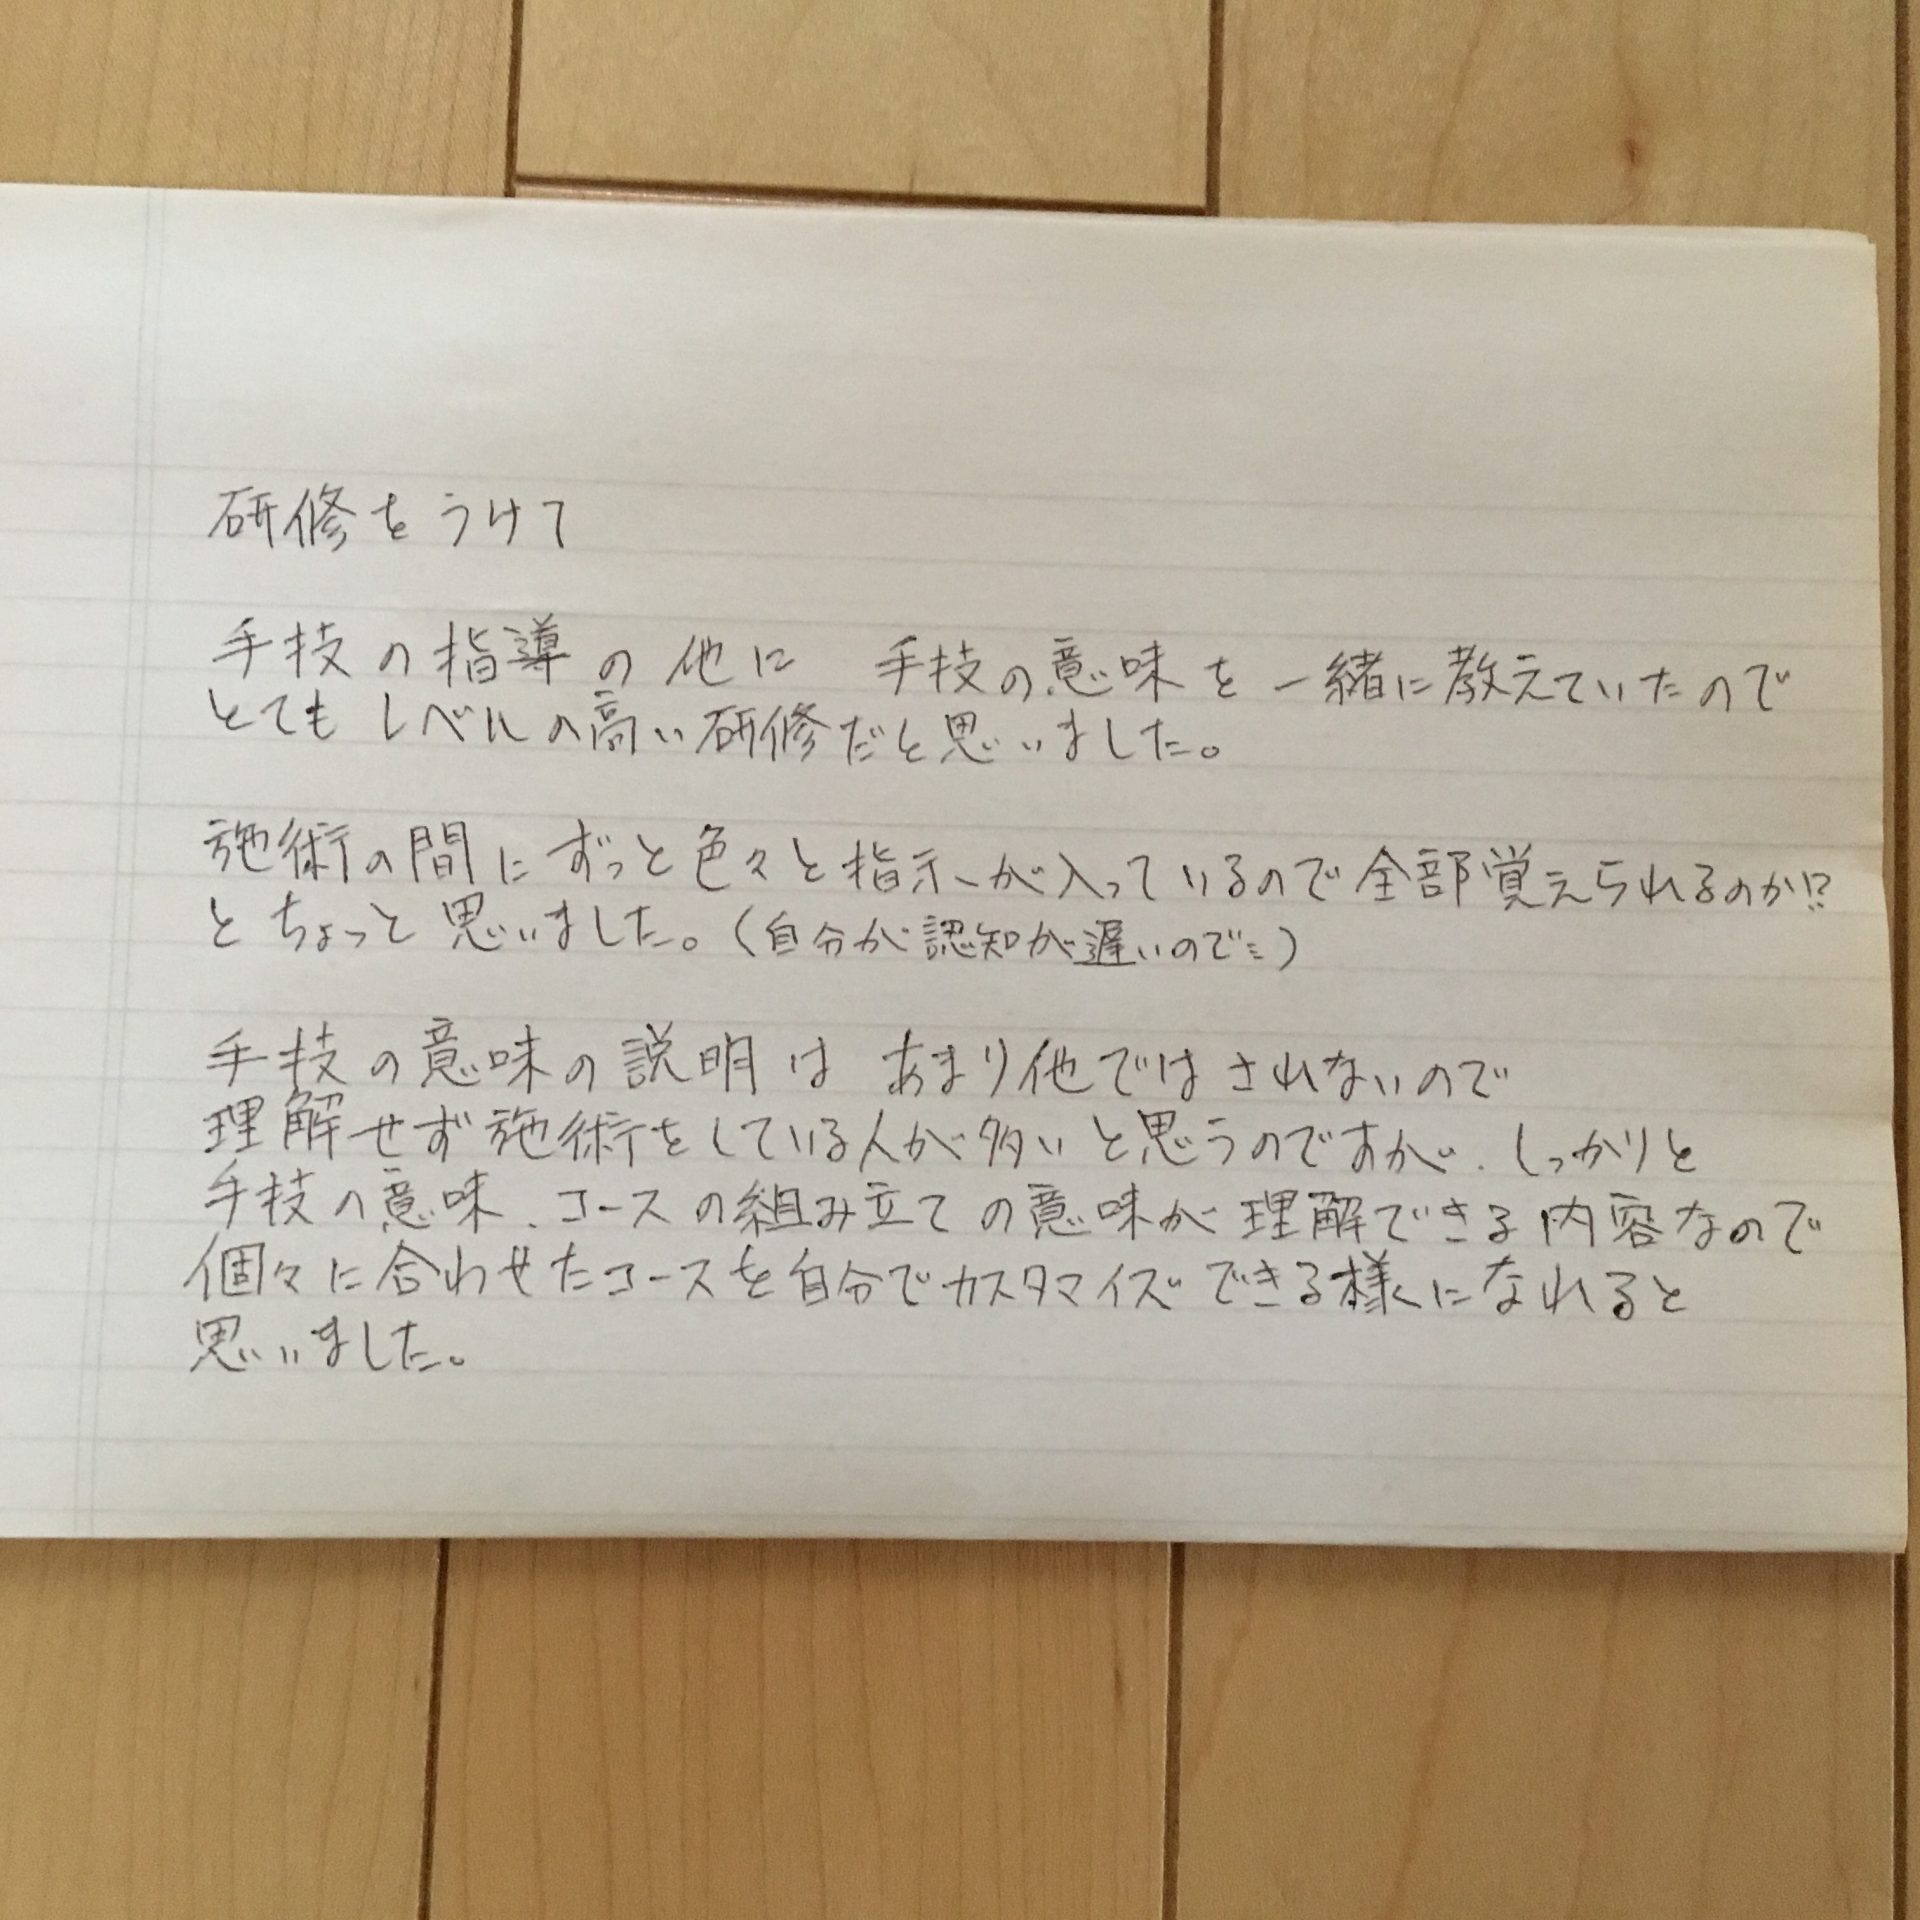 研修をうけて
手技の指導の他に 手技の意味を一緒に教えていたので
とてもレベルの高い研修だと思いました。
施術の間にずっと色々と指示が入っているので全部覚えられるのか!?
とちょっと思いました。(自分が認知が遅いので…)
手技の意味の説明は あまり他ではされないので
理解せず施術をしている人が多いと思うのですが、しっかりと
手技の意味、コースの組み立ての意味が理解できる内容なので
個々に合わせたコースを自分でカスタマイズできる様になれると
思いました。